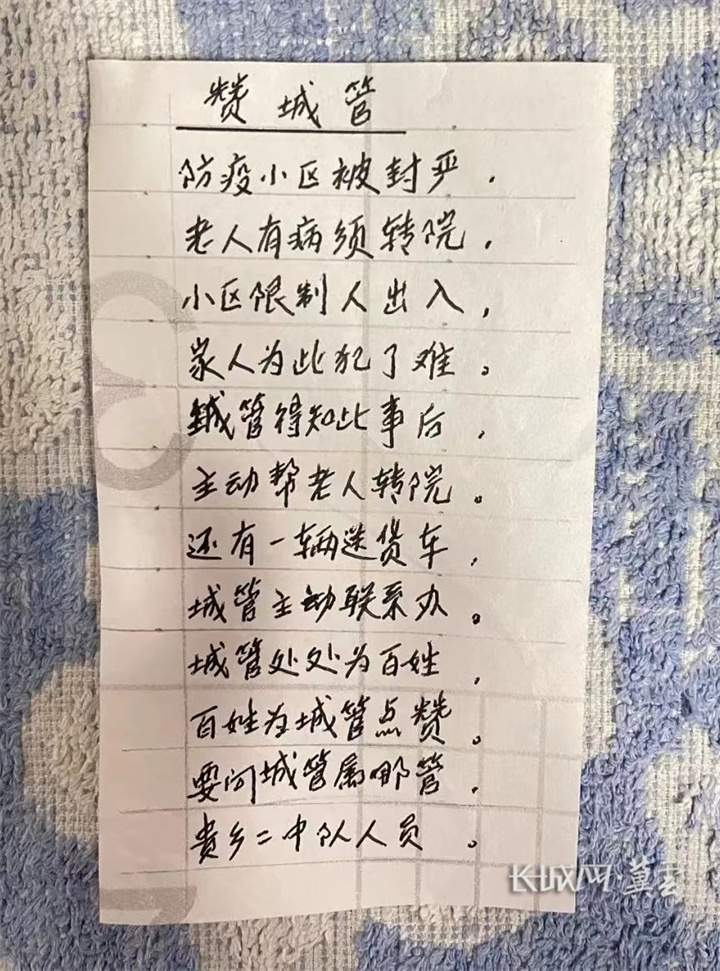 赞城管
防疫小区被封严,
老人有病须转院,
小区限制人出入,
家人为此犯了难。
城管得知此事后,
主动帮老人转院。
还有一辆送货车,
城管主动联系办。
城管处处为百姓,
百姓为城管点赞。
要问城管属哪管,
贵乡二中队人员。
长城网·冀云